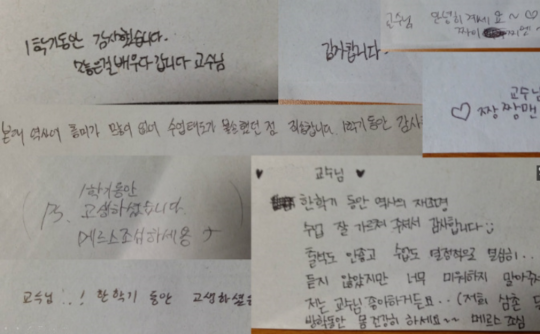 1학기동안 감사했습니다.
많은걸 배우다 갑니다 교수님
감사합니다.
교수님 안녕히 계세요~♡
교수님
♡ 짱짱맨
본래 역사에 흥미가 많이 없어 수업태도가 불손했던 점 죄송합니다. 1학기동안 감사
1학기동안
고생하셨습니다.
메르스조심하세용
♥ 교수님 ♥
한학기 동안 역사의 재조명
수업 잘 가르쳐 주셔서 감사합니다
출석도 안좋고 수업도 열정적으로 열심히..
듣지 않았지만 너무 미워하지 말아주
저는 교수님 좋아하거든요..(저희 삼촌
방학동안 몸건강히 하세요~~ 메르스 조심
교수님..! 한학기 동안 고생하셨습